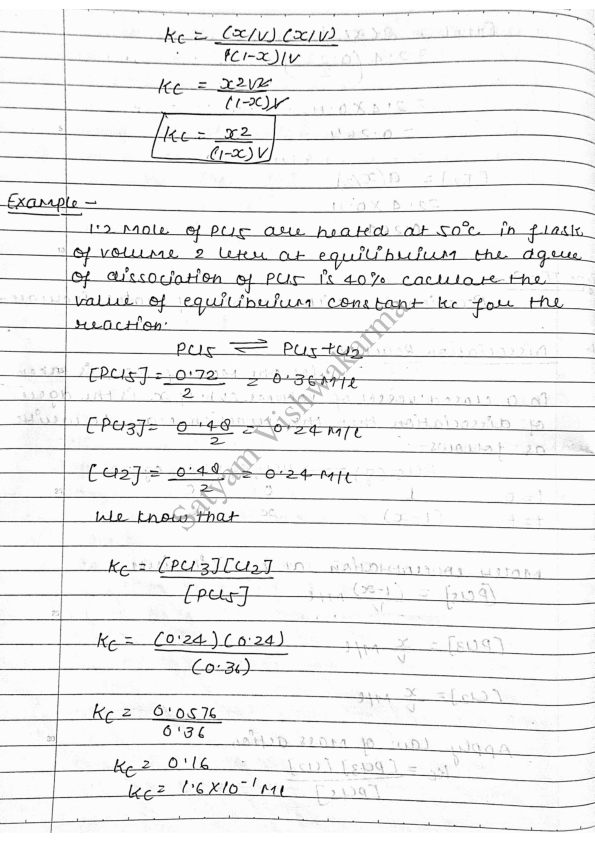 Kc = (x/V) (x/V)
(1-x)/V
Kc = x2V2
(1-x)V
Kc = x2
(1-x)V
Example -
1.2 Mole of PCl5 are heated at 50°c in flask
of volume 2 leter at equilibrium the dgree
of dissociation of PCl5 is 40% caculate the
value of equilibrium constant Kc for the
reaction.
PCl5 ⇌ PCl5 + Cl2
[PCl5] = 0.72 = 0.36 M/l
2
[PCl3] = 0.48 = 0.24 M/l
2
[Cl2] = 0.48 = 0.24 M/l
2
we know that
Kc = [PCl3][Cl2]
[PCl5]
Kc = (0.24) (0.24)
(0.36)
Kc = 0.0576
0.36
Kc = 0.16
Kc = 1.6 X 10-1 Ml
Satyam Vishwakarma